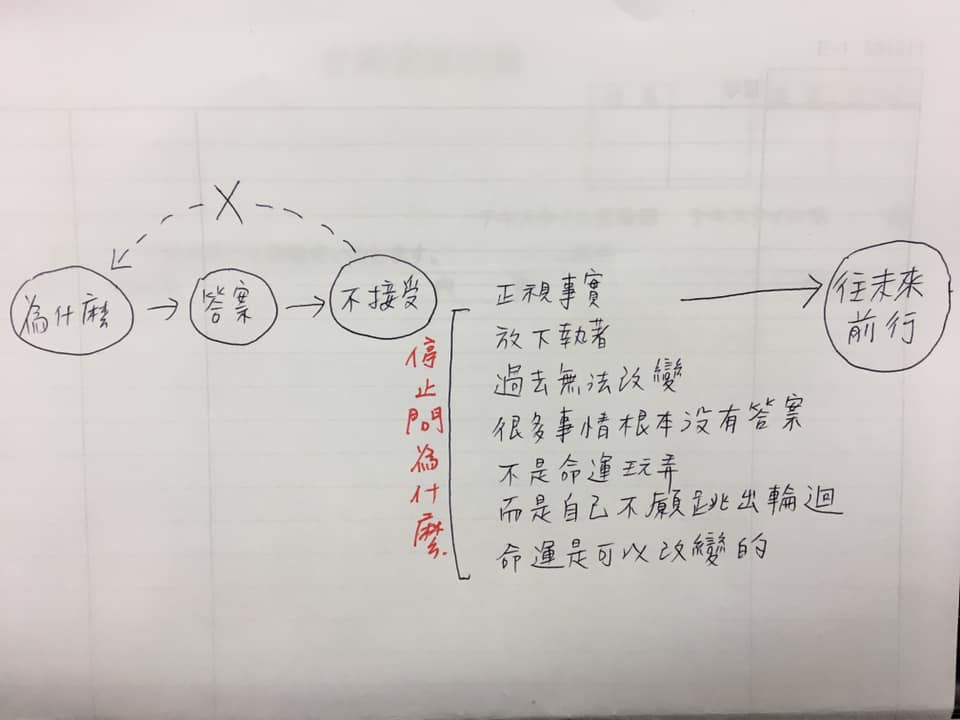 X
為什麼
答案
不接受
停止問為什麼
正視事實
放下執著
過去無法改變
很多事情根本沒有答案
不是命運玩弄
而是自己不願跳出輪迴
命運是可以改變的
往未來
前行